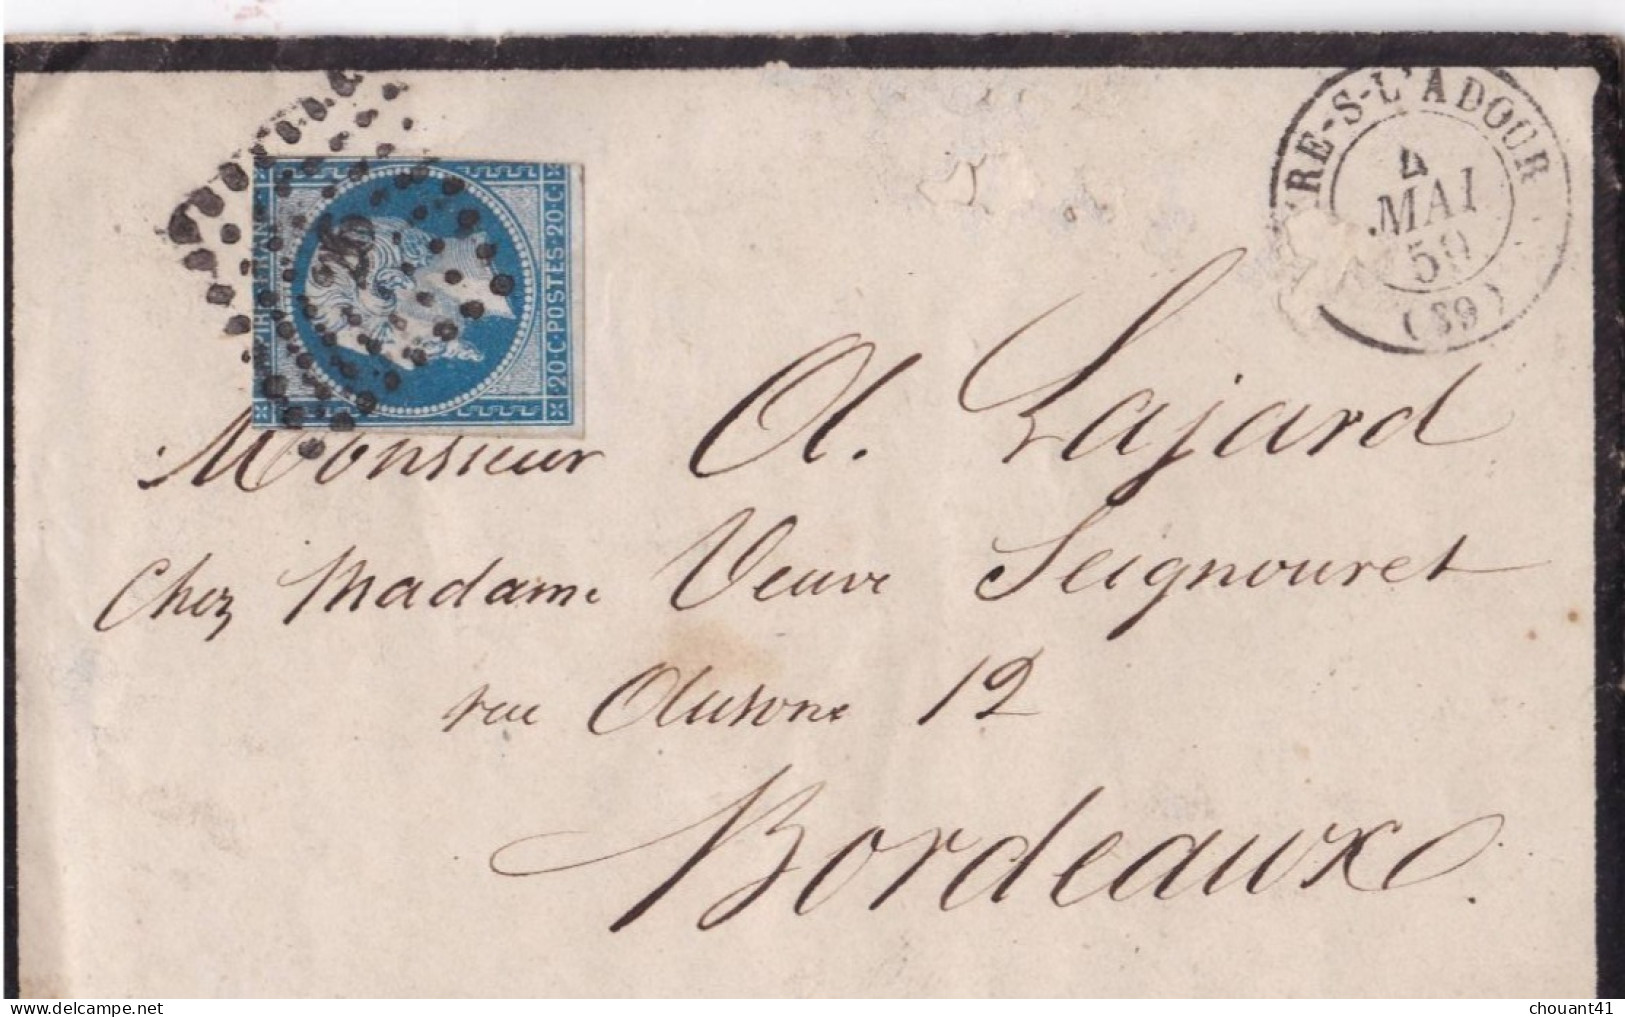 RE-S-L'ADOUR
4
MAI
59
(39)
EMPIRE FRANC
26
20 C·POSTES·20 C
Monsieur A. Lajard
Chez Madame Veuve Seignouret
rue Ausone 12
Bordeaux.
delcampe.net
chouant41